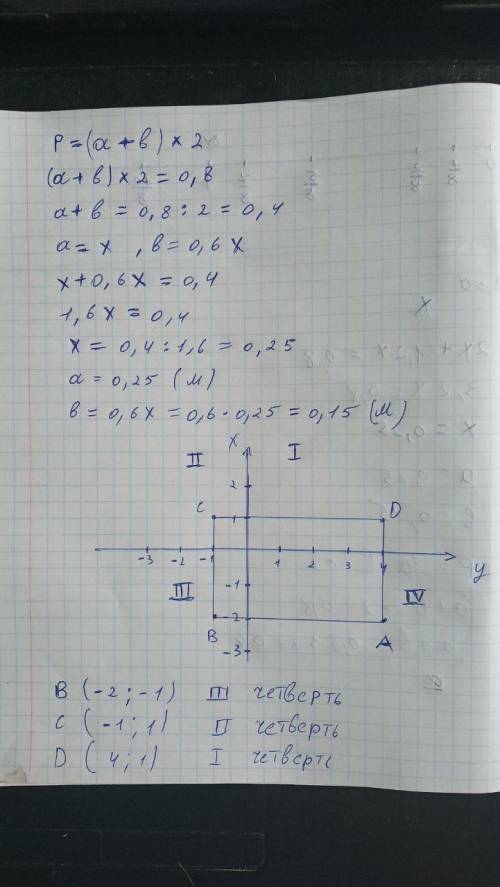 P = (a + b) × 2
(a + b) × 2 = 0,8
a + b = 0,8 : 2 = 0,4
a = x , b = 0,6x
x + 0,6x = 0,4
1,6x = 0,4
x = 0,4 : 1,6 = 0,25
a = 0,25 (м)
b = 0,6x = 0,6 · 0,25 = 0,15 (м)
x
II I
2
C 1 D
-3 -2 -1 1 2 3 4 y
III -1 IV
-2
B A
-3
B (-2; -1) III четверть
C (-1; 1) II четверть
D (4; 1) I четверть